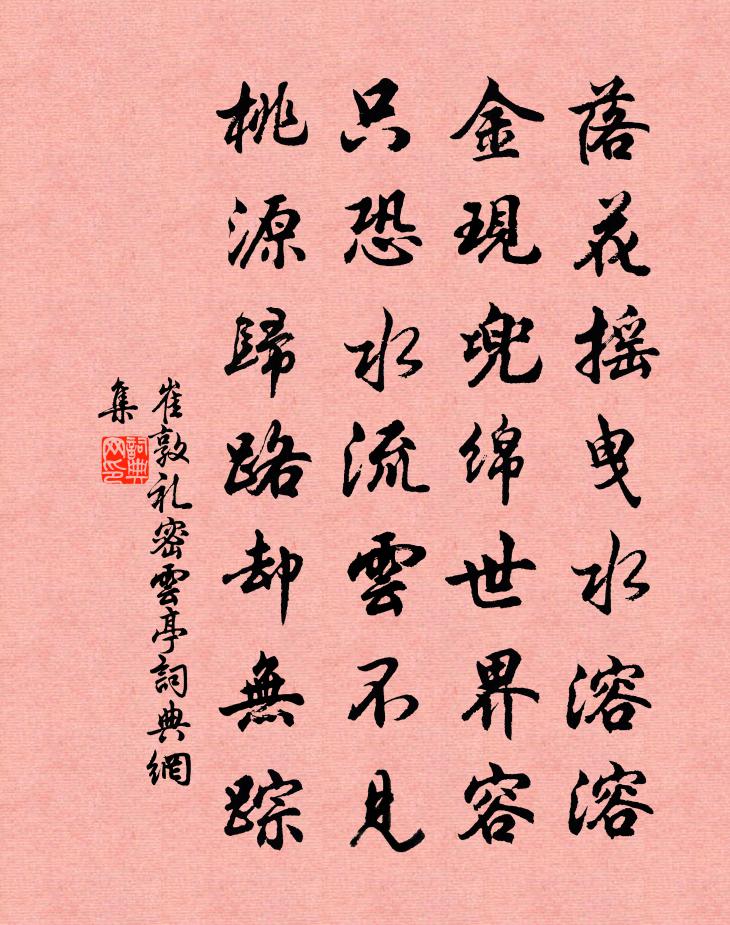 落花摇曳水溶溶
金現兜绵世界容
只恐水流雲不見
桃源歸路却無踪
崔敦礼密雲亭詞典網
集
詞典网印